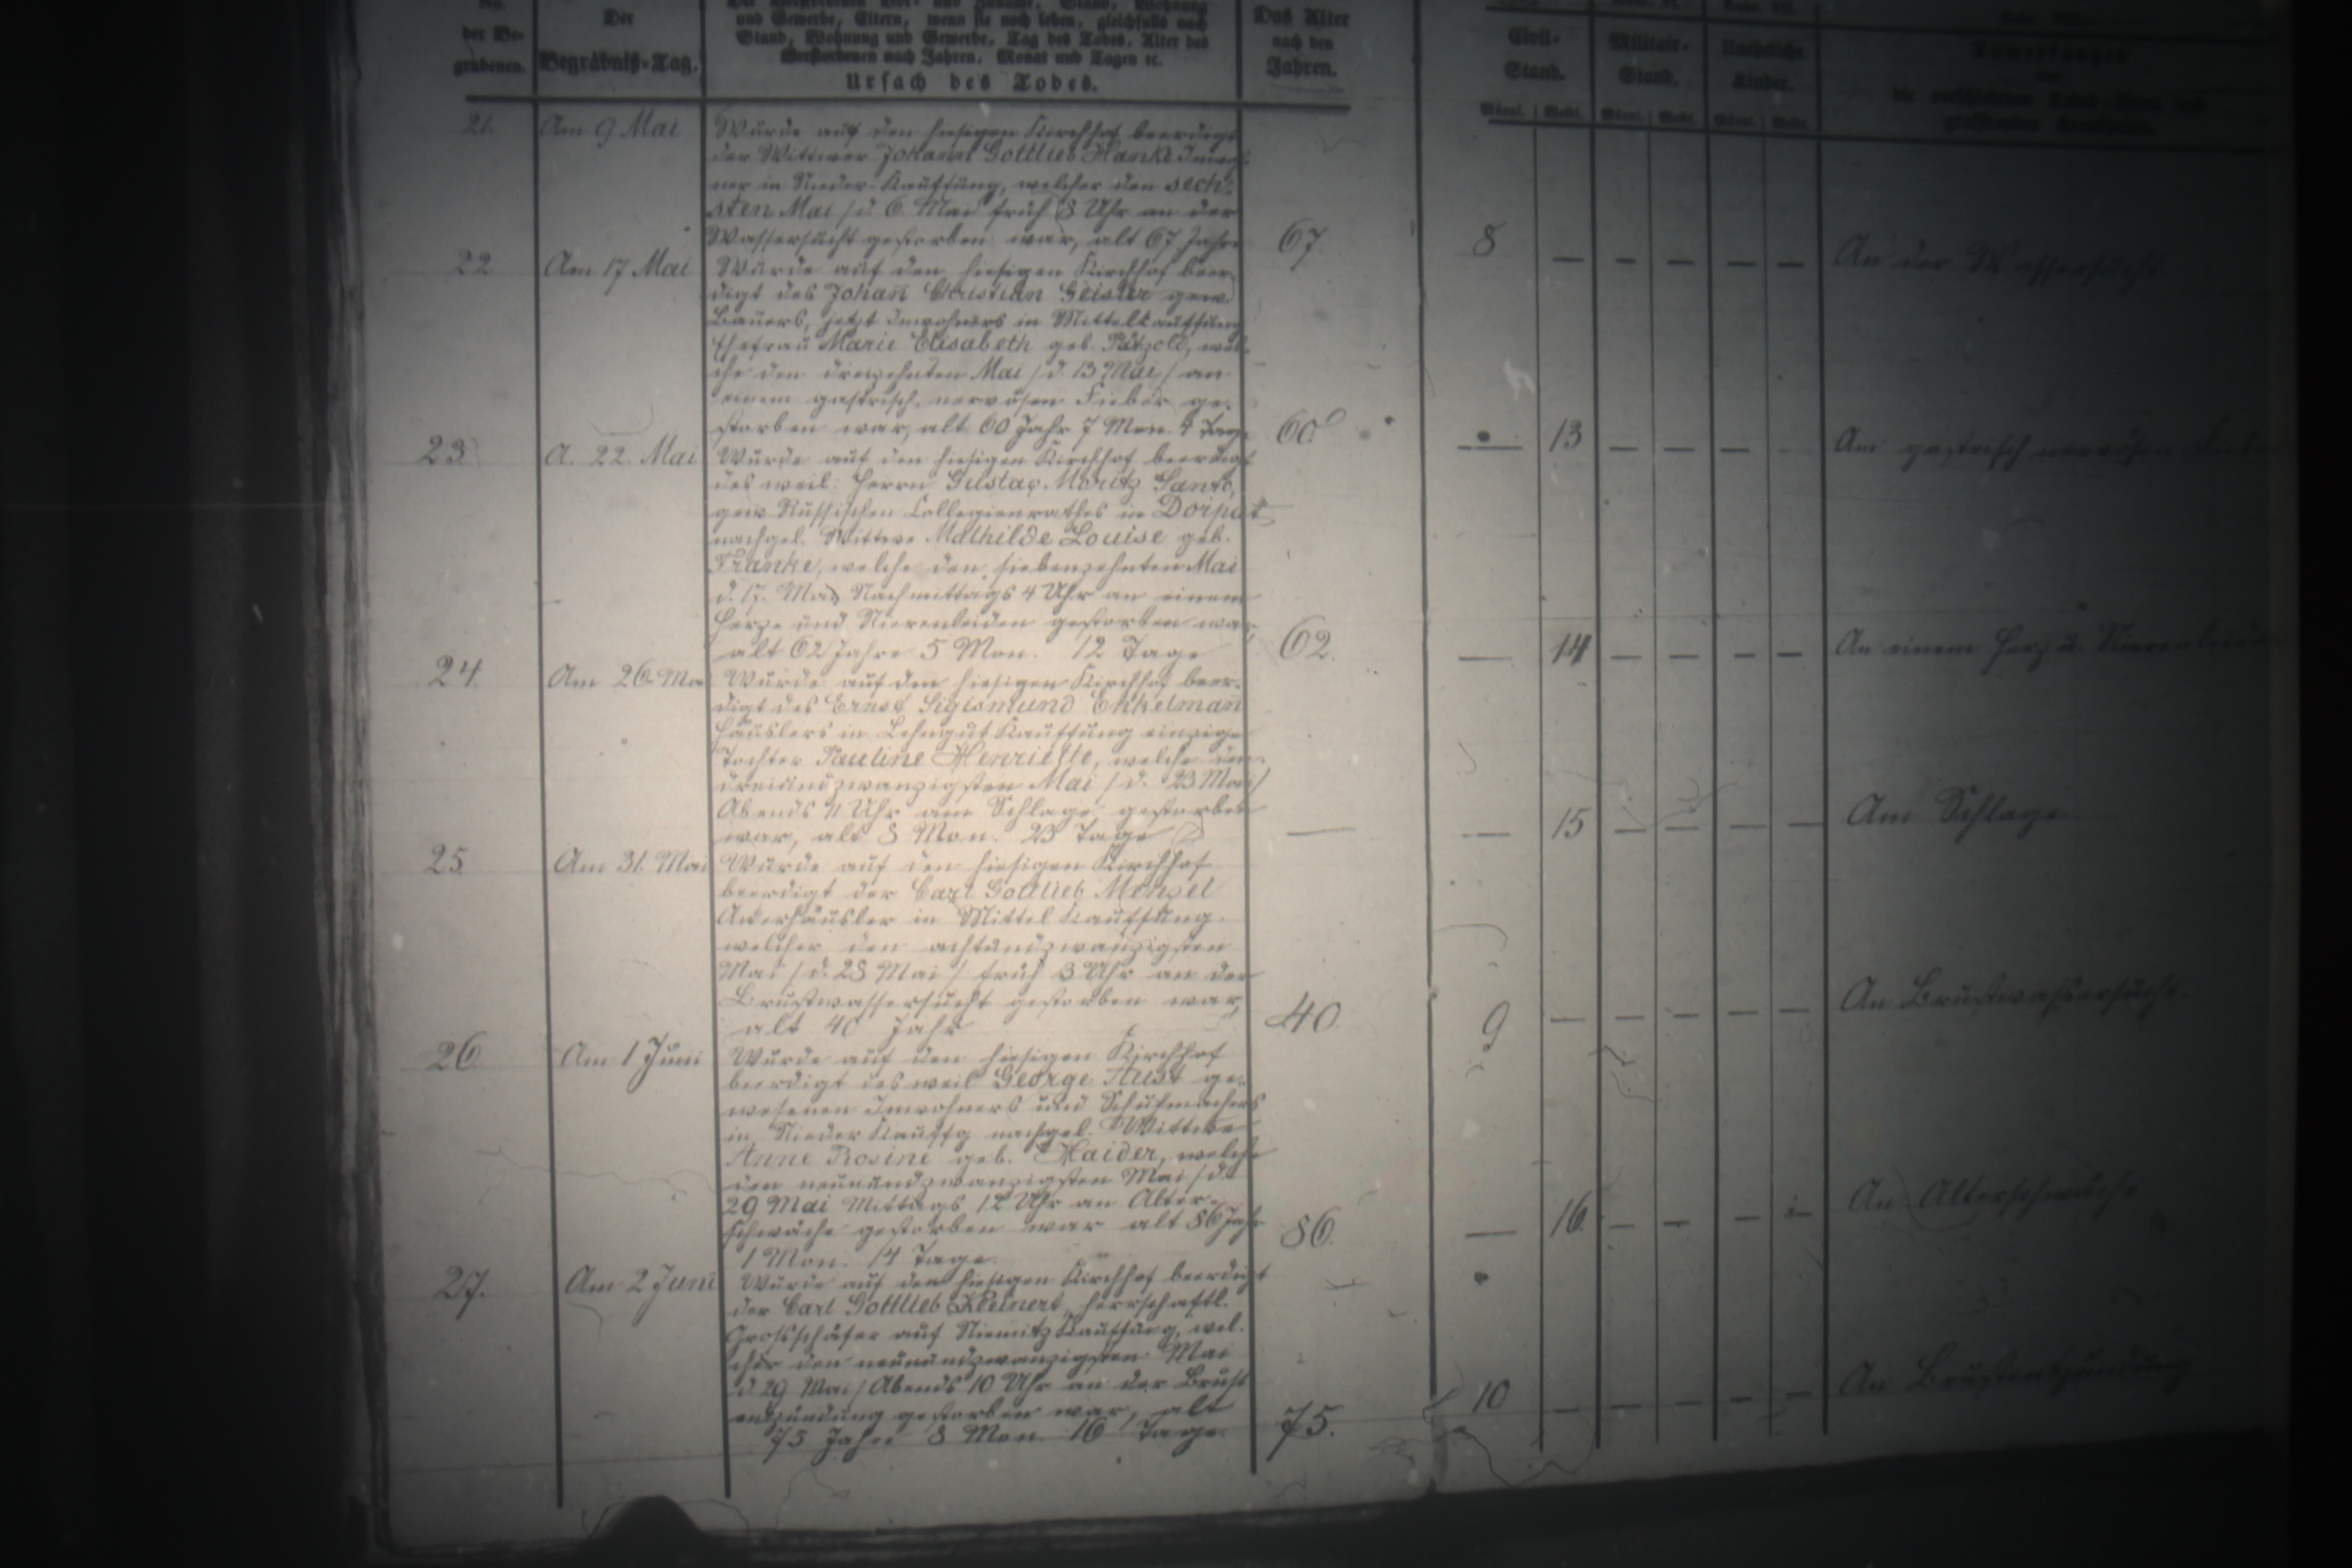 No.
der Be-
grabenen.
Der
Begräbniß-Tag.
Der Verstorbenen Vor- und Zuname, Stand, Wohnung
und Gewerbe, Eltern, wenn sie noch leben, gleichfalls nach
Stand, Wohnung und Gewerbe, Tag des Todes, Alter des
Verstorbenen nach Jahren, Monat und Tagen ꝛc.
Ursach des Todes.
Das Alter
nach den
Jahren.
Civil-
Stand.
Militair-
Stand.
Uneheliche
Kinder.
Anmerkungen
Männl. Weibl. Männl. Weibl. Männl. Weibl.
21. Am 9 Mai
Wurde auf den hiesigen Kirchhof beerdigt
der Wittwer Johann Gottlieb Hanke Inwoh-
ner in Nieder-Kauffung, welcher den sech-
sten Mai / d. 6 Mai früh 8 Uhr an der
Wassersucht gestorben war, alt 67 Jahre
67. 8 — — — — — An der Wassersucht
22 Am 17 Mai
Wurde auf den hiesigen Kirchhof beer-
digt des Johan̅ Christian Geisler gew.
Bauers, jetzt Inwohners in Mittelkauffung
Ehefrau Marie Elisabeth geb. Pätzold, wel-
che den dreizehnten Mai / d. 13 Mai / an
einem gastrisch nervösen Fieber ge-
storben war, alt 60 Jahr 7 Mon. 4 Tage
60 — 13 — — — — Am gastrisch nervösen
23. A. 22. Mai
Wurde auf den hiesigen Kirchhof beerdigt
des weil. Herrn Gustav Moritz
gew. Russischen Collegienrathes in Dorpat
nachgel. Wittwe Mathilde Louise geb.
Franke, welche den siebenzehnten Mai
d. 17. Mai Nachmittags 4 Uhr an einem
Herz- und Nierenleiden gestorben war,
alt 62 Jahre 5 Mon. 12 Tage
62. — 14 — — — — An einem Herz u. Nierenleiden
24. Am 26. Mai
Wurde auf den hiesigen Kirchhof beer-
digt des Ernst Sigismund Enkelman̅
Häuslers in Lehngut Kauffung einzige
Tochter Pauline Henriette, welche den
dreiundzwanzigsten Mai / d. 23 Mai /
Abends 11 Uhr am Schlage gestorben
war, alt 8 Mon. 23 Tage
— — 15 — — — — Am Schlage
25. Am 31. Mai
Wurde auf den hiesigen Kirchhof
beerdigt der Carl Gottlieb Menzel
Ackerhäusler in Mittel Kauffung.
welcher den achtundzwanzigsten
Mai / d. 28 Mai / früh 3 Uhr an der
Brustwassersucht gestorben war,
alt 40 Jahr
40. 9 — — — — — An Brustwassersucht.
26. Am 1 Juni
Wurde auf den hiesigen Kirchhof
beerdigt des weil George Aust ge-
wesenen Inwohners und Schuhmachers
in Nieder Kauffg nachgel. Wittwe
Anne Rosine geb. Haider, welche
den neunundzwanzigsten Mai / d.
29 Mai Mittags 12 Uhr an Alter-
schwäche gestorben war alt 86 Jahr
1 Mon. 14 Tage.
86. — 16. — — — — An Alterschwäche
27. Am 2 Juni
Wurde auf den hiesigen Kirchhof beerdigt
der Carl Gottlieb Kleinert, herrschaftl.
Grosschäfer auf Niemitz Kauffung, wel-
cher den neunundzwanzigsten Mai
d 29 Mai / Abends 10 Uhr an der Brust
entzündung gestorben war, alt
75 Jahre 8 Mon. 16 Tage.
75. 10 — — — — — An Brustentzündung